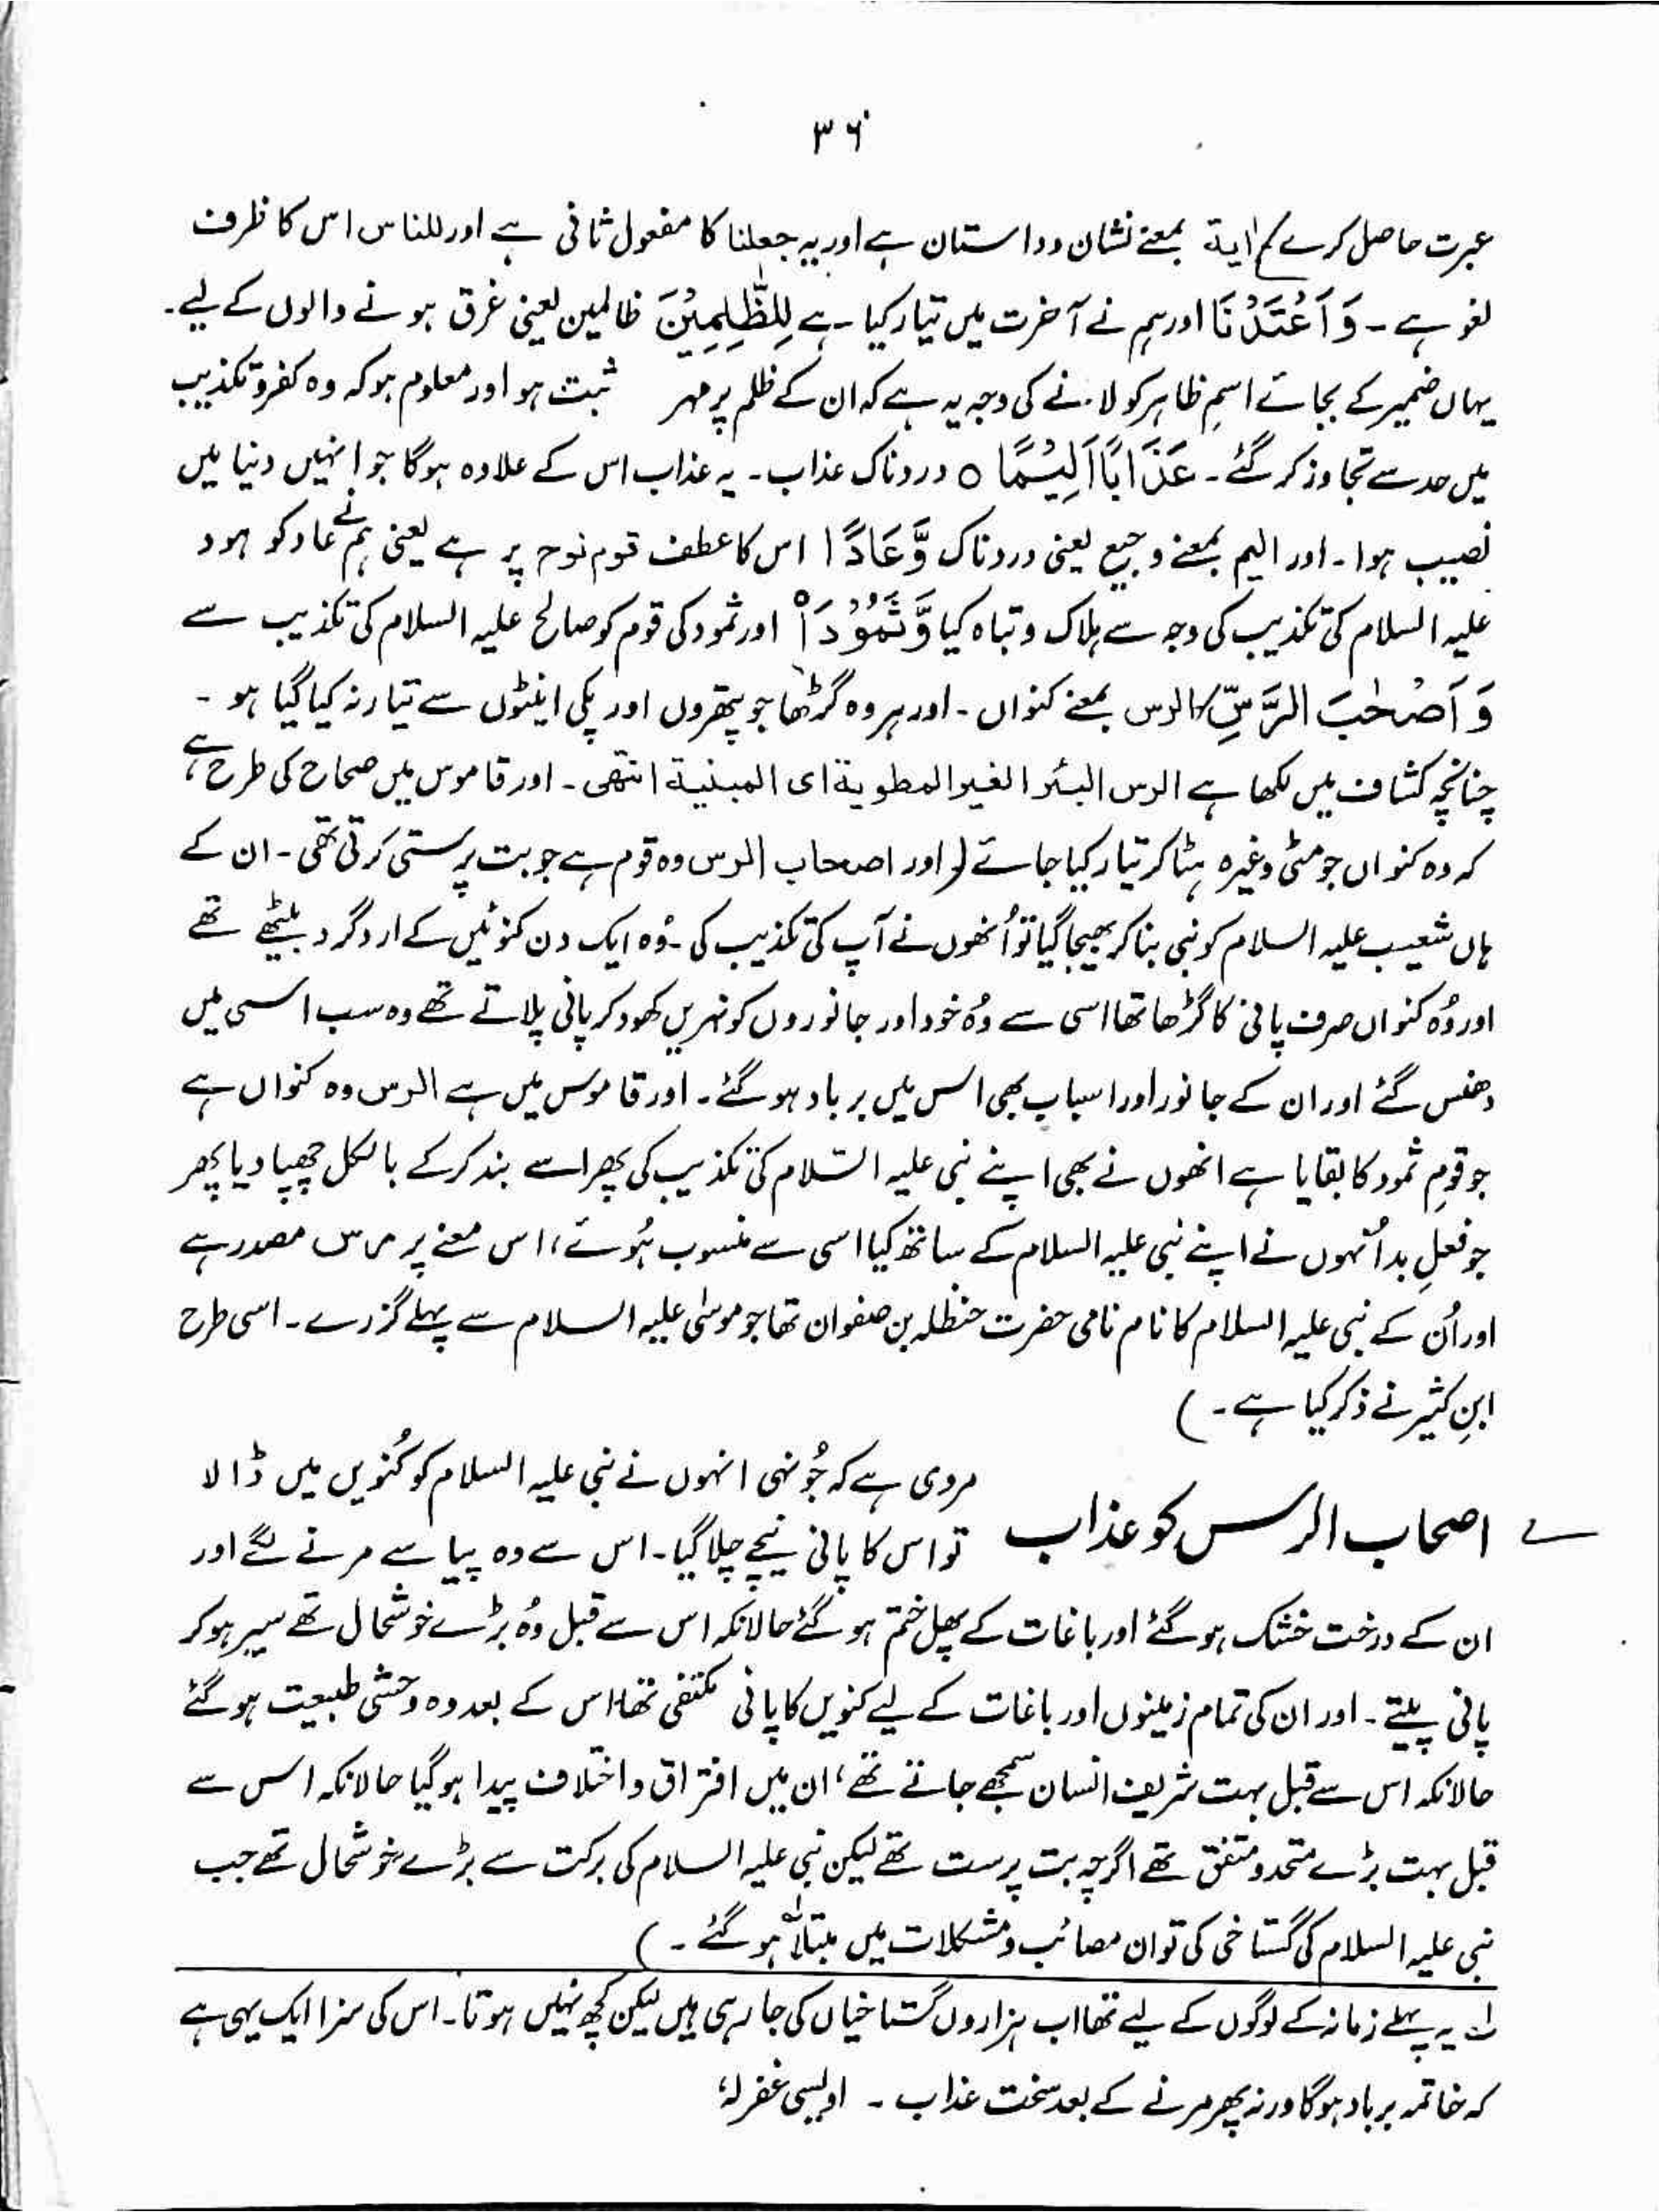 ۳۶
عبرت حاصل کرے۔ اٰیة بمعنے نشان و داستان ہے اور یہ جعلنا کا مفعول ثانی ہے اور للناس اس کا ظرف
لغو ہے ۔ وَ اَعْتَدْنَا اور ہم نے آخرت میں تیار کیا ۔ ہے لِلظّٰلِمِیْنَ ظالمین یعنی غرق ہونے والوں کے لیے۔
یہاں ضمیر کے بجائے اسمِ ظاہر کو لانے کی وجہ یہ ہے کہ ان کے ظلم پر مہر ثبت ہو اور معلوم ہو کہ وہ کفر و تکذیب
میں حد سے تجاوز کر گئے ۔ عَذَابًا اَلِیْمًا ○ دردناک عذاب ۔ یہ عذاب اس کے علاوہ ہوگا جو انہیں دنیا میں
نصیب ہوا ۔ اور الیم بمعنے وجیع یعنی دردناک وَّ عَادًا اس کا عطف قوم نوح پر ہے یعنی ہم نے عاد کو ہود
علیہ السلام کی تکذیب کی وجہ سے ہلاک و تباہ کیا وَّ ثَمُوْدَا۟ اور ثمود کی قوم کو صالح علیہ السلام کی تکذیب سے
وَ اَصْحٰبَ الرَّسِّ الرس بمعنے کنواں ۔ اور ہر وہ گڑھا جو پتھروں اور پکی اینٹوں سے تیار نہ کیا گیا ہو ۔
چنانچہ کشاف میں لکھا ہے الرس البئر الغیر المطویة ای المبنیة انتهی ۔ اور قاموس میں صحاح کی طرح ہے،
کہ وہ کنواں جو مٹی وغیرہ ہٹا کر تیار کیا جائے (اور اصحاب الرس وہ قوم ہے جو بت پرستی کرتی تھی ۔ ان کے
ہاں شعیب علیہ السلام کو نبی بنا کر بھیجا گیا تو اُنھوں نے آپ کی تکذیب کی ۔ وُہ ایک دن کنوئیں کے اردگرد بیٹھے تھے
اور وُہ کنواں صرف پانی کا گڑھا تھا اسی سے وُہ خود اور جانوروں کو نہریں کھود کر پانی پلاتے تھے وہ سب اسی میں
دھنس گئے اور ان کے جانور اور اسباب بھی اس میں برباد ہو گئے ۔ اور قاموس میں ہے الرس وہ کنواں ہے
جو قومِ ثمود کا بقایا ہے انھوں نے بھی اپنے نبی علیہ السّلام کی تکذیب کی پھر اسے بند کر کے بالکل چھپا دیا پھر
جو فعلِ بد اُنہوں نے اپنے نبی علیہ السلام کے ساتھ کیا اسی سے منسوب ہُوئے، اس معنے پر رس مصدر ہے
اور اُن کے نبی علیہ السلام کا نام نامی حضرت حنظلہ بن صفوان تھا جو موسیٰ علیہ السلام سے پہلے گزرے ۔ اسی طرح
ابنِ کثیر نے ذکر کیا ہے ۔ )
اصحاب الرس کو عذاب
مروی ہے کہ جُونہی انہوں نے نبی علیہ السلام کو کُنویں میں ڈالا
تو اس کا پانی نیچے چلا گیا ۔ اس سے وہ پیاسے مرنے لگے اور
ان کے درخت خشک ہو گئے اور باغات کے پھل ختم ہو گئے حالانکہ اس سے قبل وُہ بڑے خوشحال تھے سیر ہو کر
پانی پیتے ۔ اور ان کی تمام زمینوں اور باغات کے لیے کنویں کا پانی مکتفی تھا اس کے بعد وہ وحشی طبیعت ہو گئے
حالانکہ اس سے قبل بہت شریف انسان سمجھے جاتے تھے، ان میں افتراق و اختلاف پیدا ہو گیا حالانکہ اس سے
قبل بہت بڑے متحد و متفق تھے اگرچہ بت پرست تھے لیکن نبی علیہ السلام کی برکت سے بڑے خوشحال تھے جب
نبی علیہ السلام کی گستاخی کی تو ان مصائب و مشکلات میں مبتلا ہو گئے ۔ )
لہ یہ پہلے زمانہ کے لوگوں کے لیے تھا اب ہزاروں گستاخیاں کی جا رہی ہیں لیکن کچھ نہیں ہوتا ۔ اس کی سزا ایک یہی ہے
کہ خاتمہ برباد ہوگا ورنہ پھر مرنے کے بعد سخت عذاب ۔ اویسی غفرلہٗ